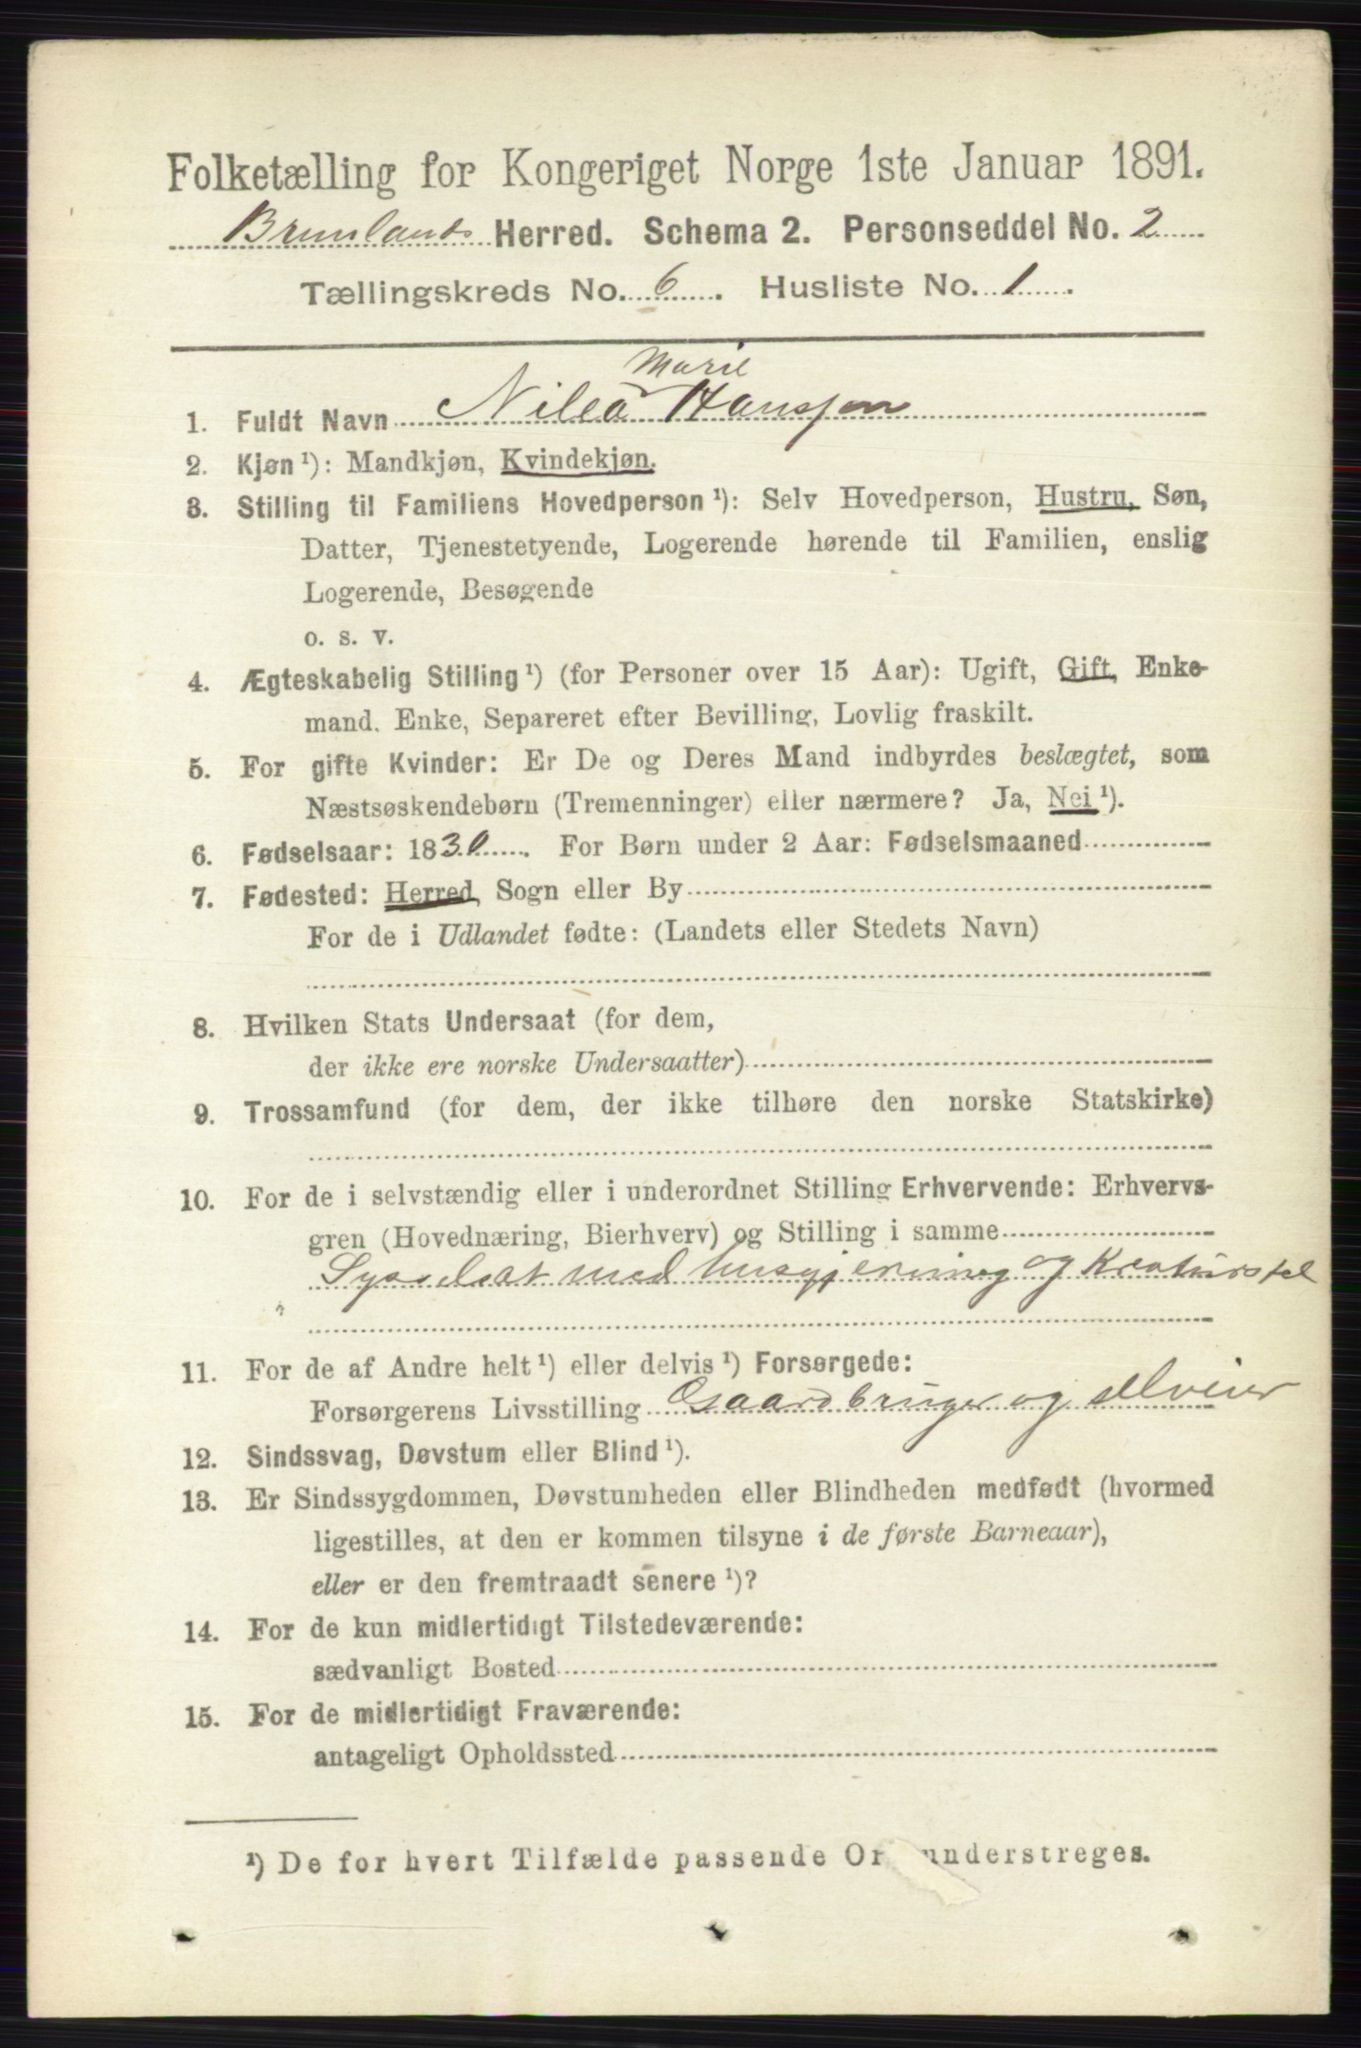 Folketælling for Kongeriget Norge 1ste Januar 1891.
Brunlands Herred. Schema 2. Personseddel No. 2
Tællingskreds No. 6. Husliste No. 1.
Marie
1. Fuldt Navn Nilea Hanssen
2. Kjøn ¹): Mandkjøn, Kvindekjøn.
3. Stilling til Familiens Hovedperson ¹): Selv Hovedperson, Hustru, Søn,
Datter, Tjenestetyende, Logerende hørende til Familien, enslig
Logerende, Besøgende
o. s. v.
4. Ægteskabelig Stilling ¹) (for Personer over 15 Aar): Ugift, Gift, Enke-
mand, Enke, Separeret efter Bevilling, Lovlig fraskilt.
5. For gifte Kvinder: Er De og Deres Mand indbyrdes beslægtet, som
Næstsøskendebørn (Tremenninger) eller nærmere? Ja, Nei ¹).
6. Fødselsaar: 1830. For Børn under 2 Aar: Fødselsmaaned
7. Fødested: Herred, Sogn eller By
For de i Udlandet fødte: (Landets eller Stedets Navn)
8. Hvilken Stats Undersaat (for dem,
der ikke ere norske Undersaatter)
9. Trossamfund (for dem, der ikke tilhøre den norske Statskirke)
10. For de i selvstændig eller i underordnet Stilling Erhvervende: Erhvervs-
gren (Hovednæring, Bierhverv) og Stilling i samme
Sysselsat med husgjerning og Kreaturstel
11. For de af Andre helt ¹) eller delvis ¹) Forsørgede:
Forsørgerens Livsstilling Gaardbruger og selveier
12. Sindssvag, Døvstum eller Blind ¹).
13. Er Sindssygdommen, Døvstumheden eller Blindheden medfødt (hvormed
ligestilles, at den er kommen tilsyne i de første Barneaar),
eller er den fremtraadt senere ¹)?
14. For de kun midlertidigt Tilstedeværende:
sædvanligt Bosted
15. For de midlertidigt Fraværende:
antageligt Opholdssted
¹) De for hvert Tilfælde passende Or understreges.